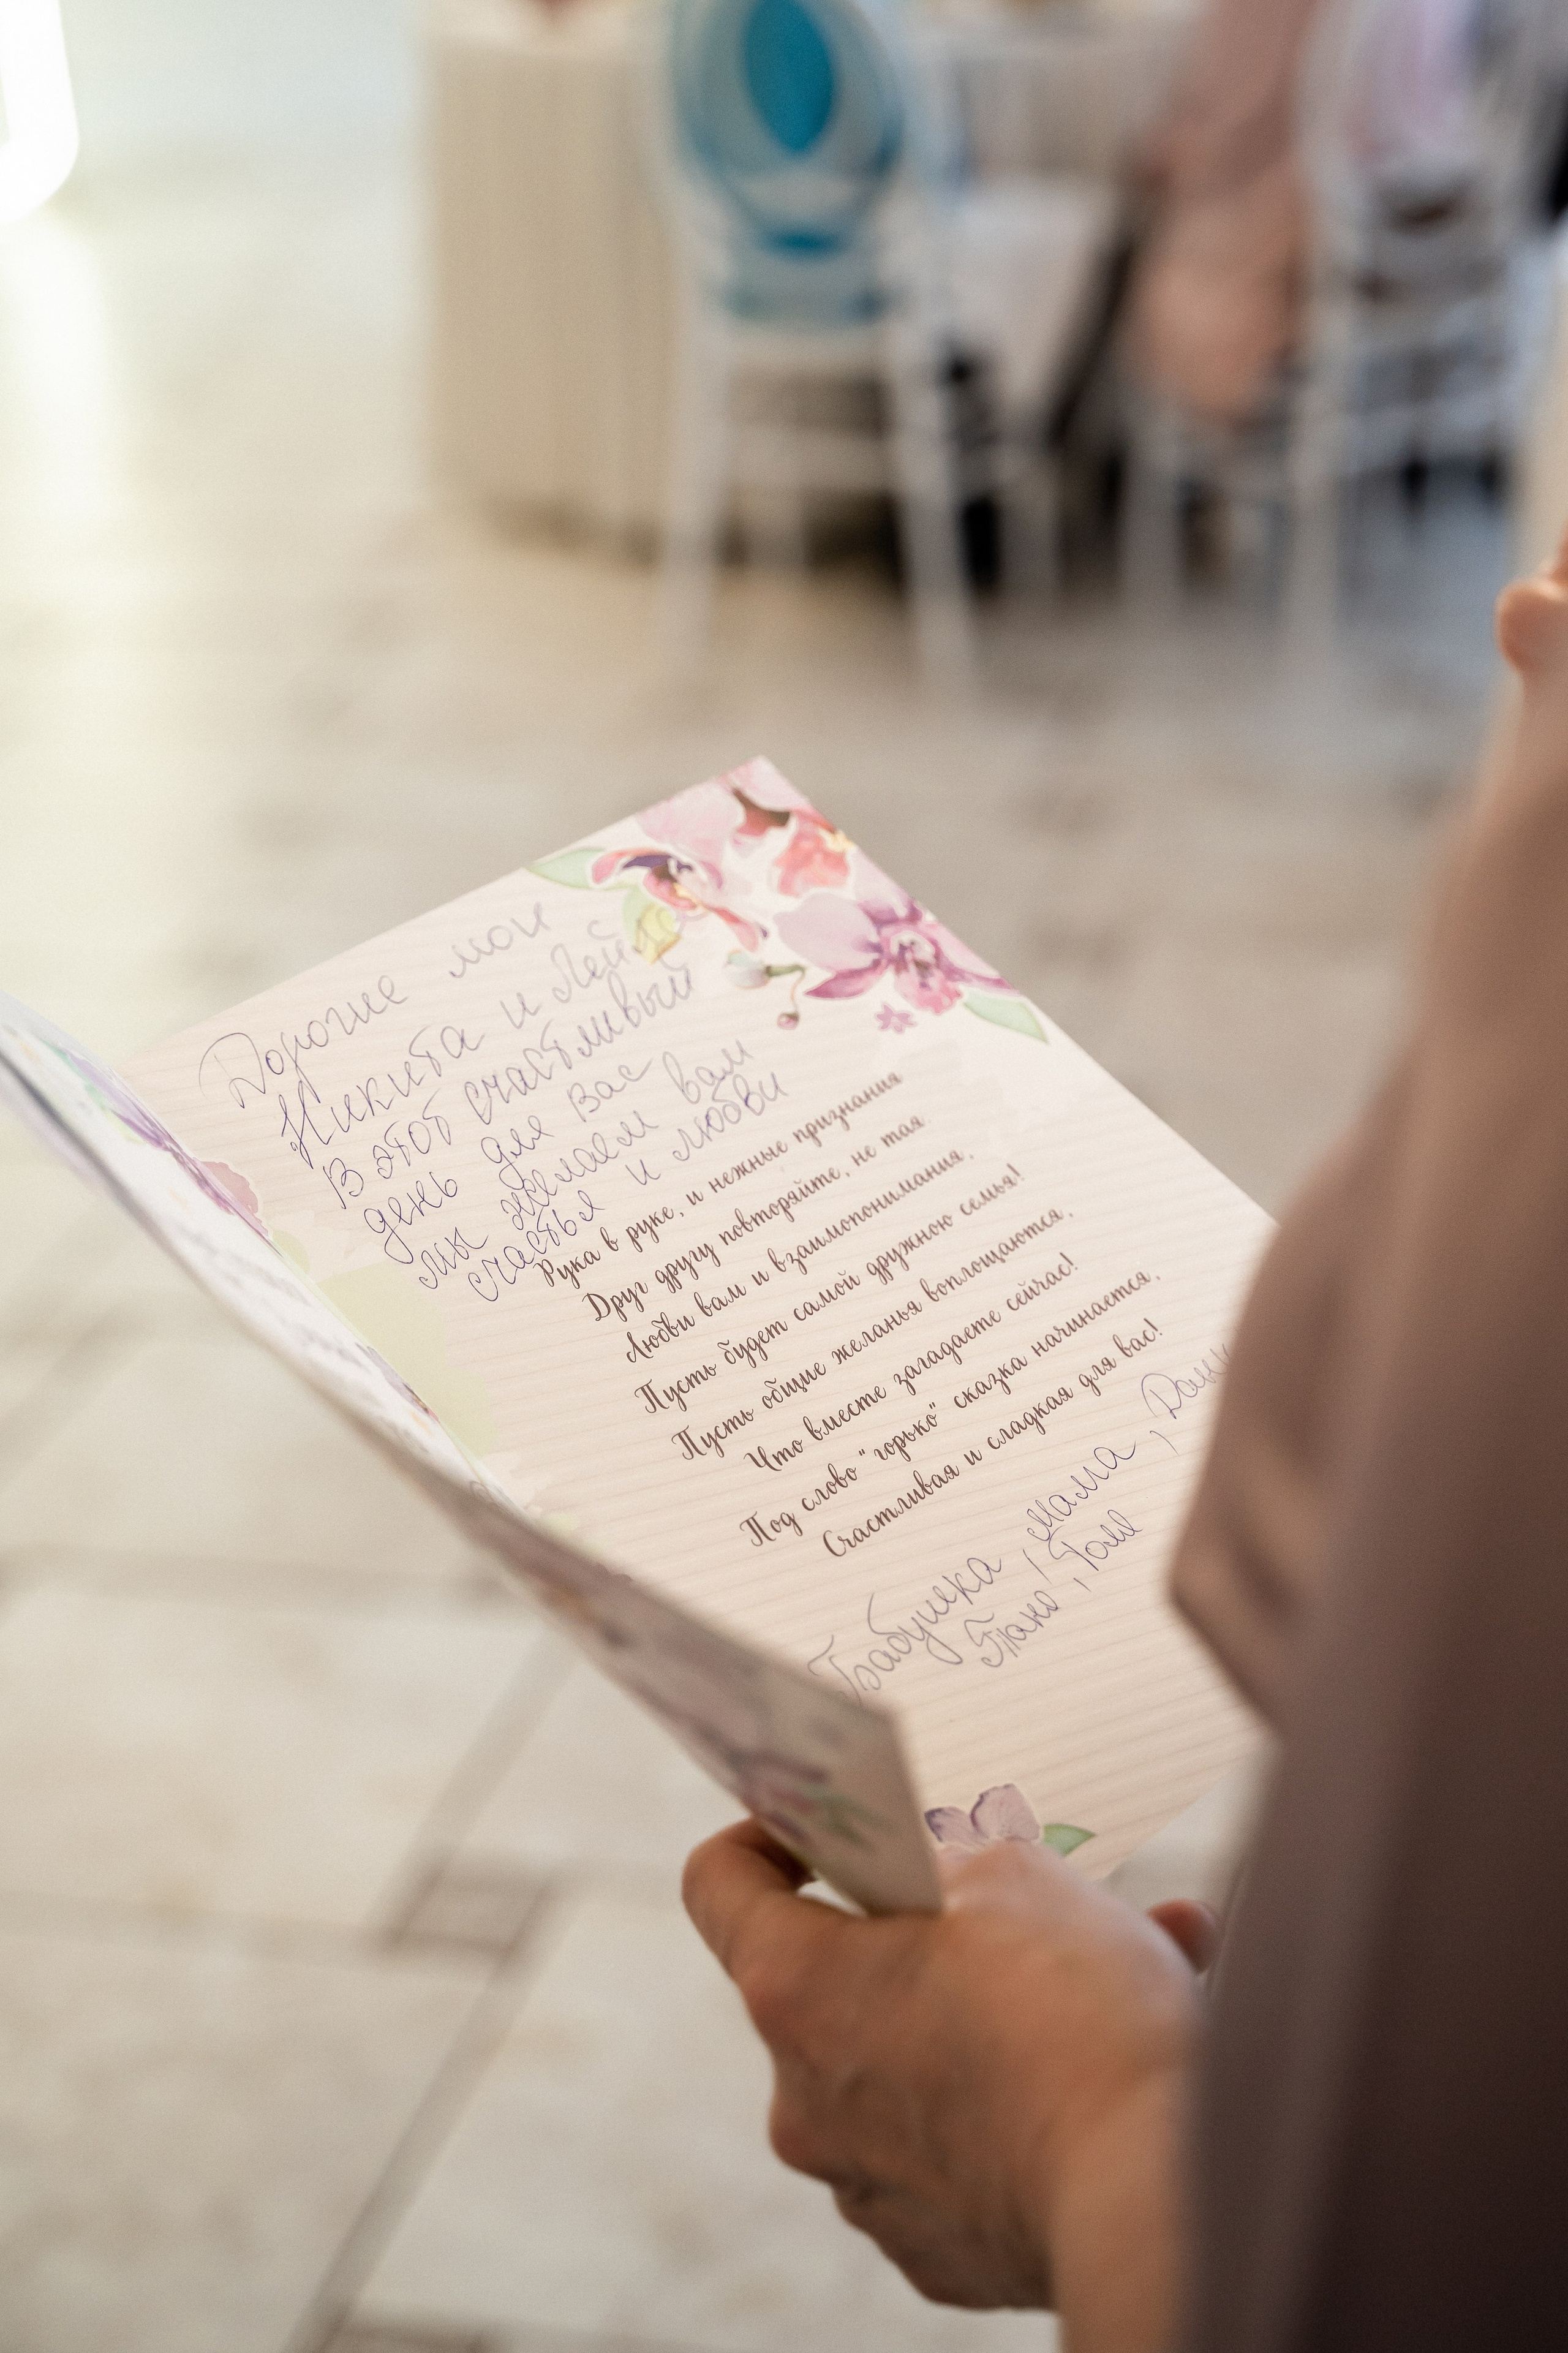 Дорогие мои
Никита и Лейла
В этот счастливый
день для Вас
мы желаем вам
счастья и любви
Рука в руке, и нежные признания
Друг другу повторяйте, не тая.
Любви вам и взаимопонимания,
Пусть будет самой дружною семья!
Пусть общие желанья воплощаются,
Что вместе загадаете сейчас!
Под слово "горько" сказка начинается,
Счастливая и сладкая для вас!
Бабушка, Мама,